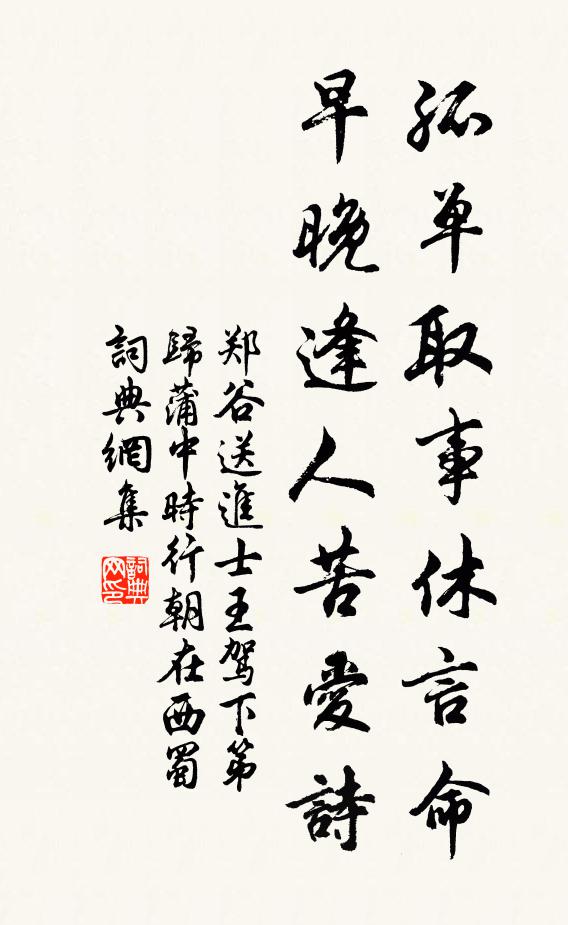 孤单取事休言命
早晚逢人苦愛詩
郑谷送進士王駕下第
歸蒲中時行朝在西蜀
詞典網集
詞典
网印